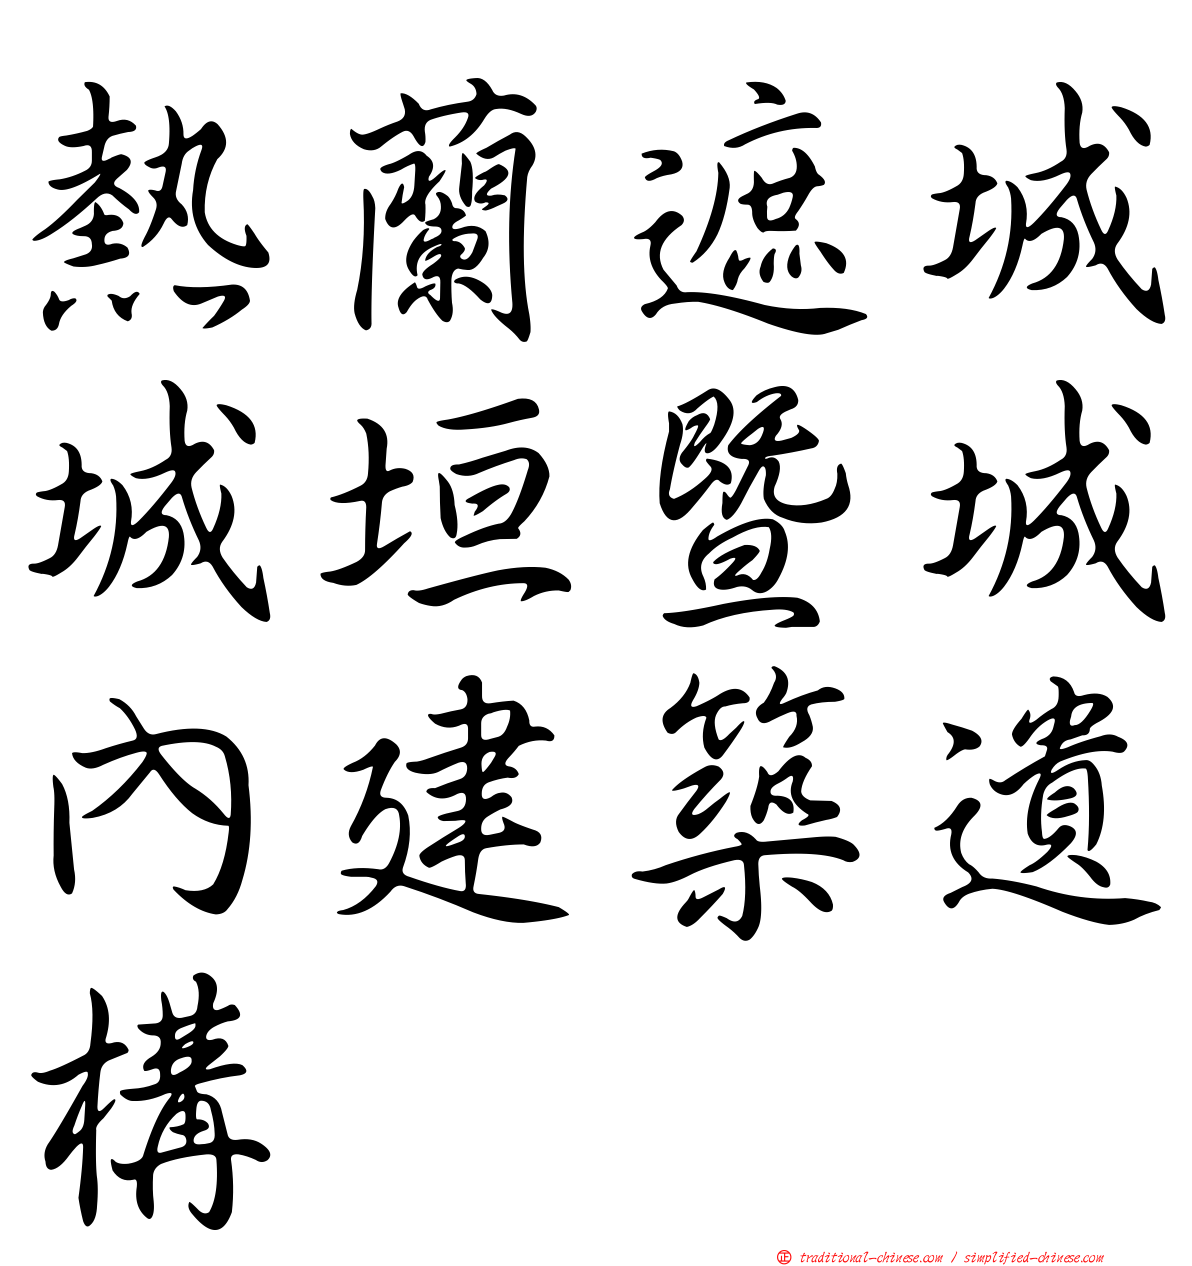 熱蘭遮城
城垣暨城
內建築遺
構
正 traditional-chinese.com / simplified-chinese.com